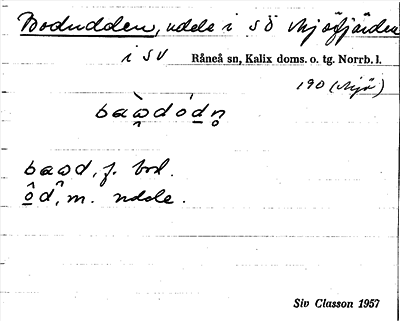 Bodudden, udde i SÖ Mjöfjärden
i SV Råneå sn, Kalix doms. o. tg. Norrb. l.
190 (Mjö)
baωdódn̥
baωd, f. bod.
ôd, m. udde.
Siv Classon 1957